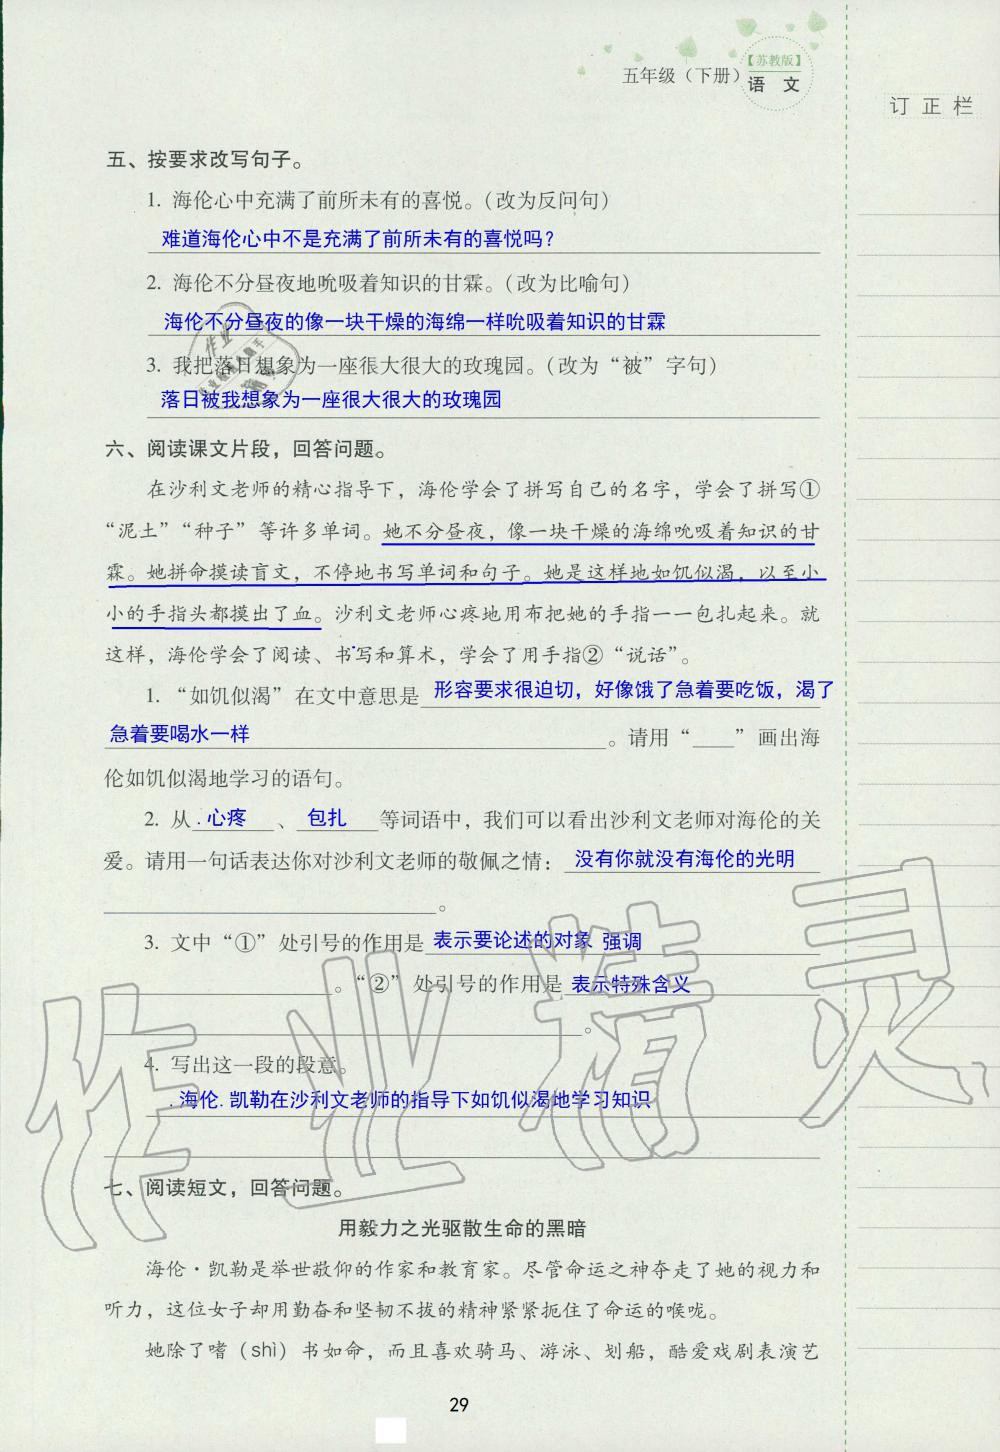 五年级（下册）
【苏教版】
语 文
订 正 栏
五、按要求改写句子。
1. 海伦心中充满了前所未有的喜悦。（改为反问句）
难道海伦心中不是充满了前所未有的喜悦吗？
2. 海伦不分昼夜地吮吸着知识的甘霖。（改为比喻句）
海伦不分昼夜的像一块干燥的海绵一样吮吸着知识的甘霖
3. 我把落日想象为一座很大很大的玫瑰园。（改为“被”字句）
落日被我想象为一座很大很大的玫瑰园
六、阅读课文片段，回答问题。
在沙利文老师的精心指导下，海伦学会了拼写自己的名字，学会了拼写①
“泥土”“种子”等许多单词。她不分昼夜，像一块干燥的海绵吮吸着知识的甘
霖。她拼命摸读盲文，不停地书写单词和句子。她是这样地如饥似渴，以至小
小的手指头都摸出了血。沙利文老师心疼地用布把她的手指一一包扎起来。就
这样，海伦学会了阅读、书写和算术，学会了用手指②“说话”。
1. “如饥似渴”在文中意思是 形容要求很迫切，好像饿了急着要吃饭，渴了
急着要喝水一样 。请用“____”画出海
伦如饥似渴地学习的语句。
2. 从 心疼 、 包扎 等词语中，我们可以看出沙利文老师对海伦的关
爱。请用一句话表达你对沙利文老师的敬佩之情： 没有你就没有海伦的光明
。
3. 文中“①”处引号的作用是 表示要论述的对象 强调
。“②”处引号的作用是 表示特殊含义
。
4. 写出这一段的段意。
海伦.凯勒在沙利文老师的指导下如饥似渴地学习知识
七、阅读短文，回答问题。
用毅力之光驱散生命的黑暗
海伦·凯勒是举世敬仰的作家和教育家。尽管命运之神夺走了她的视力和
听力，这位女子却用勤奋和坚韧不拔的精神紧紧扼住了命运的喉咙。
她除了嗜（shì）书如命，而且喜欢骑马、游泳、划船，酷爱戏剧表演艺
29
作业精灵